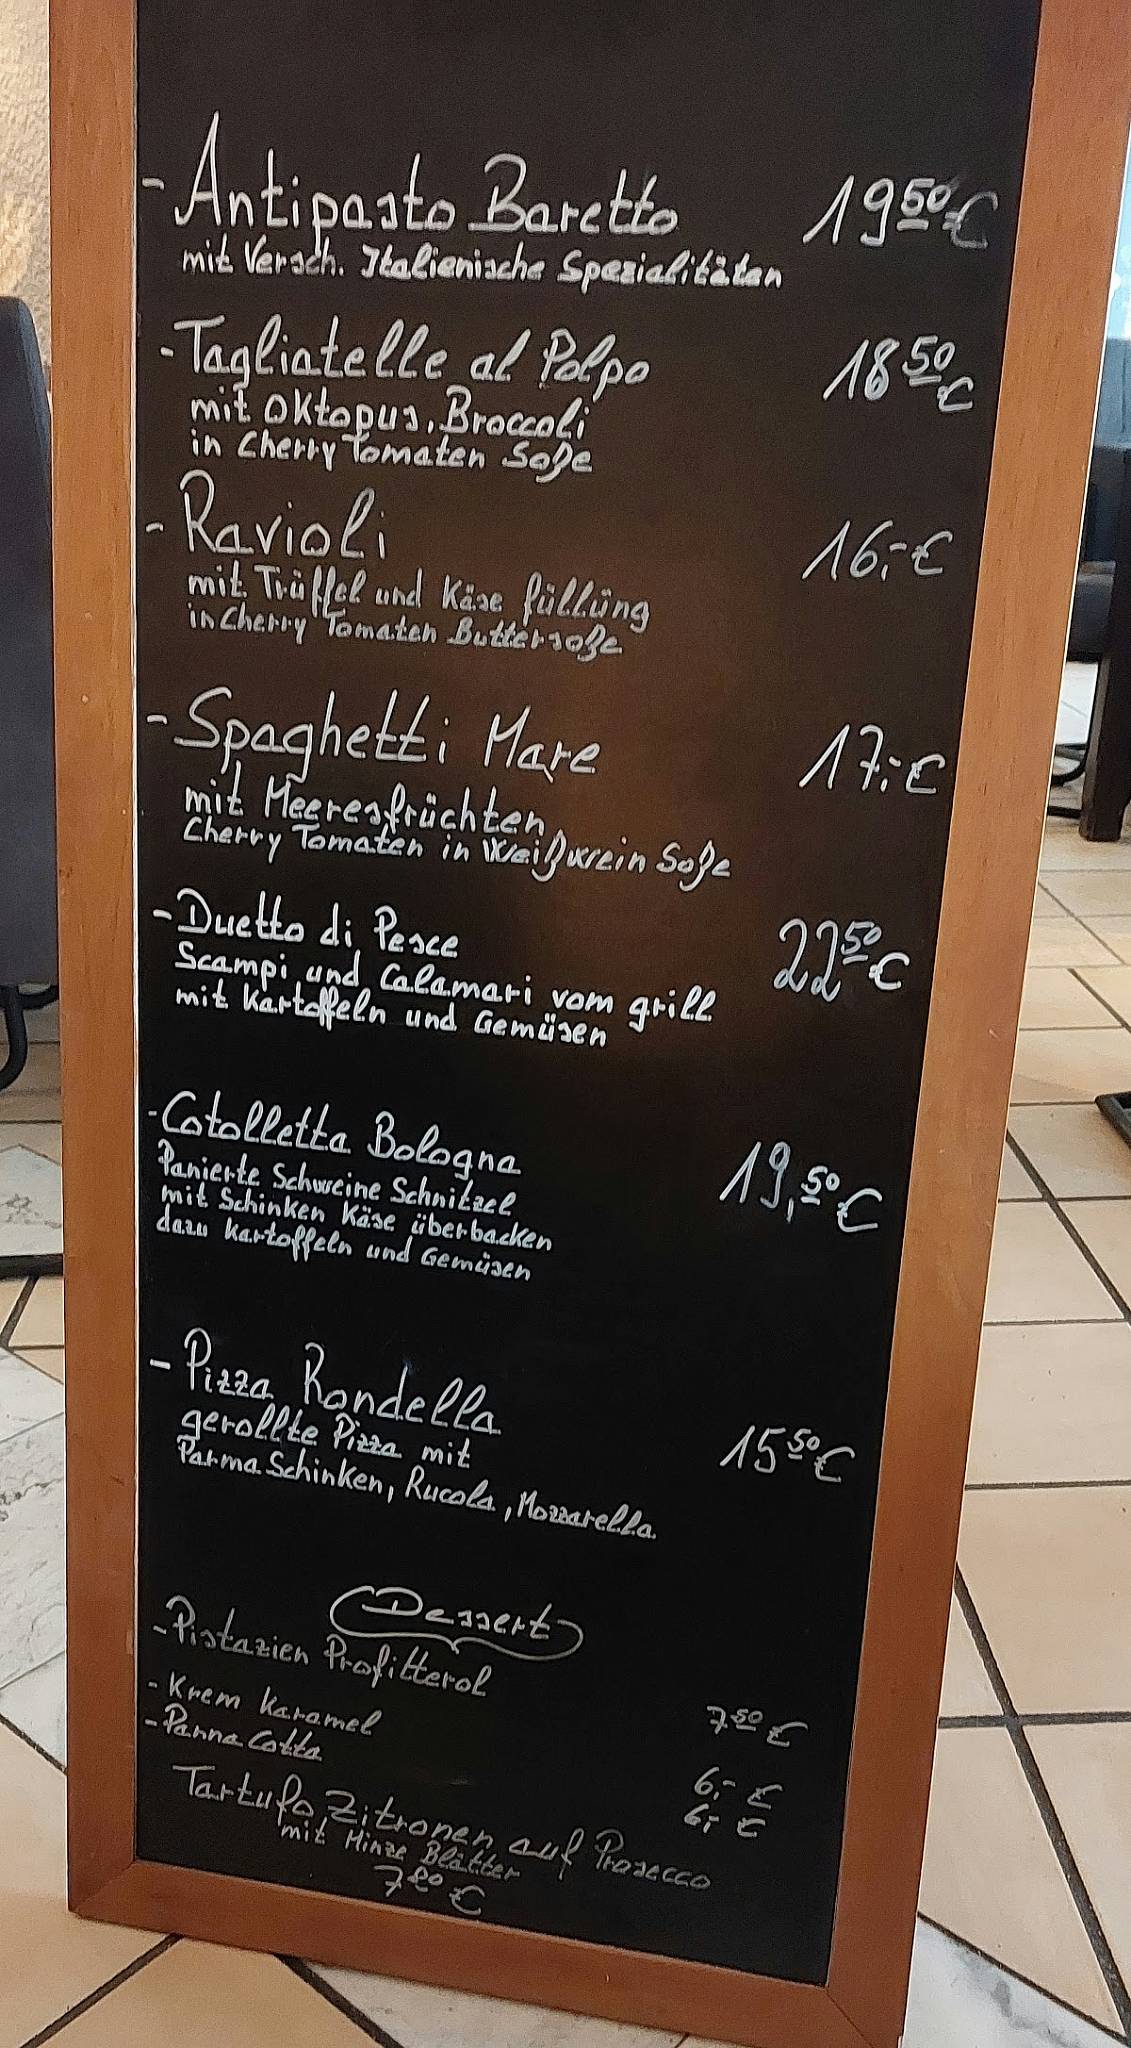 - Antipasto Baretto 19 50 €
mit Versch. Italienische Spezialitäten
- Tagliatelle al Polpo 18 50 €
mit Oktopus, Broccoli
in Cherry Tomaten Soße
- Ravioli 16,- €
mit Trüffel und Käse füllüng
in Cherry Tomaten Buttersoße
- Spaghetti Mare 17,- €
mit Meeresfrüchten,
Cherry Tomaten in Weißwein Soße
- Duetto di Pesce 22 50 €
Scampi und Calamari vom grill
mit Kartoffeln und Gemüsen
- Cotolletta Bologna 19, 50 €
Panierte Schweine Schnitzel
mit Schinken Käse überbacken
dazu Kartoffeln und Gemüsen
- Pizza Rondella 15 50 €
gerollte Pizza mit
Parma Schinken, Rucola, Mozzarella
Dessert
- Pistazien Profitterol 7 50 €
- Krem Karamel 6,- €
- Panna Cotta 6,- €
Tartufo Zitronen auf Prosecco
mit Minze Blätter